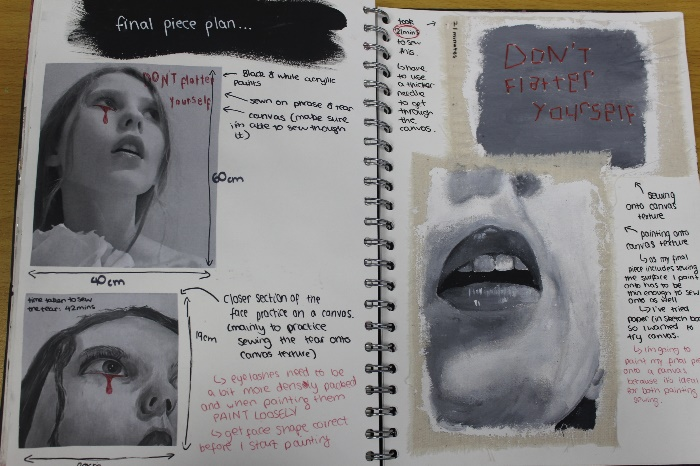 final piece plan...
DONT flatter
yourself
Black & white acrylic
paints
sewn on phrase & tear
canvas (make sure
im able to sew through
it)
60cm
40cm
time taken to sew
the tear: 42mins
19cm
closer section of the
face practice on a canvas.
(mainly to practice
sewing the tear onto
canvas texture)
eyelashes need to be
a bit more densely packed
and when painting them
PAINT LOOSELY
get face shape correct
before I start painting
took
21mins
to sew
this.
have
to use
a thicker
needle
to get
through
the
canvas.
21 minutes
DON'T
Flatter
Yourself
sewing
onto canvas
texture
painting onto
canvas texture
as my final
piece includes sewing
the surface I paint
onto has to be
thin enough to sew
onto as well
I've tried
paper (in sketch
so I wanted to
try canvas.
I'm going to
paint my final
onto a canvas
because its ideal
for both painting
sewing.